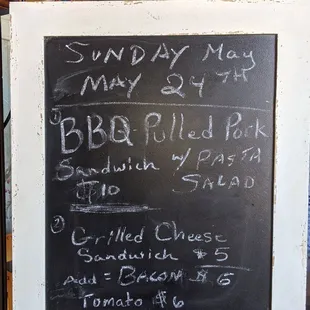 SUNDAY May
MAY 24TH
① BBQ Pulled Pork
Sandwich w/ PASTA
$10 SALAD
② Grilled Cheese
Sandwich $5
Add = BACON $6
Tomato $6